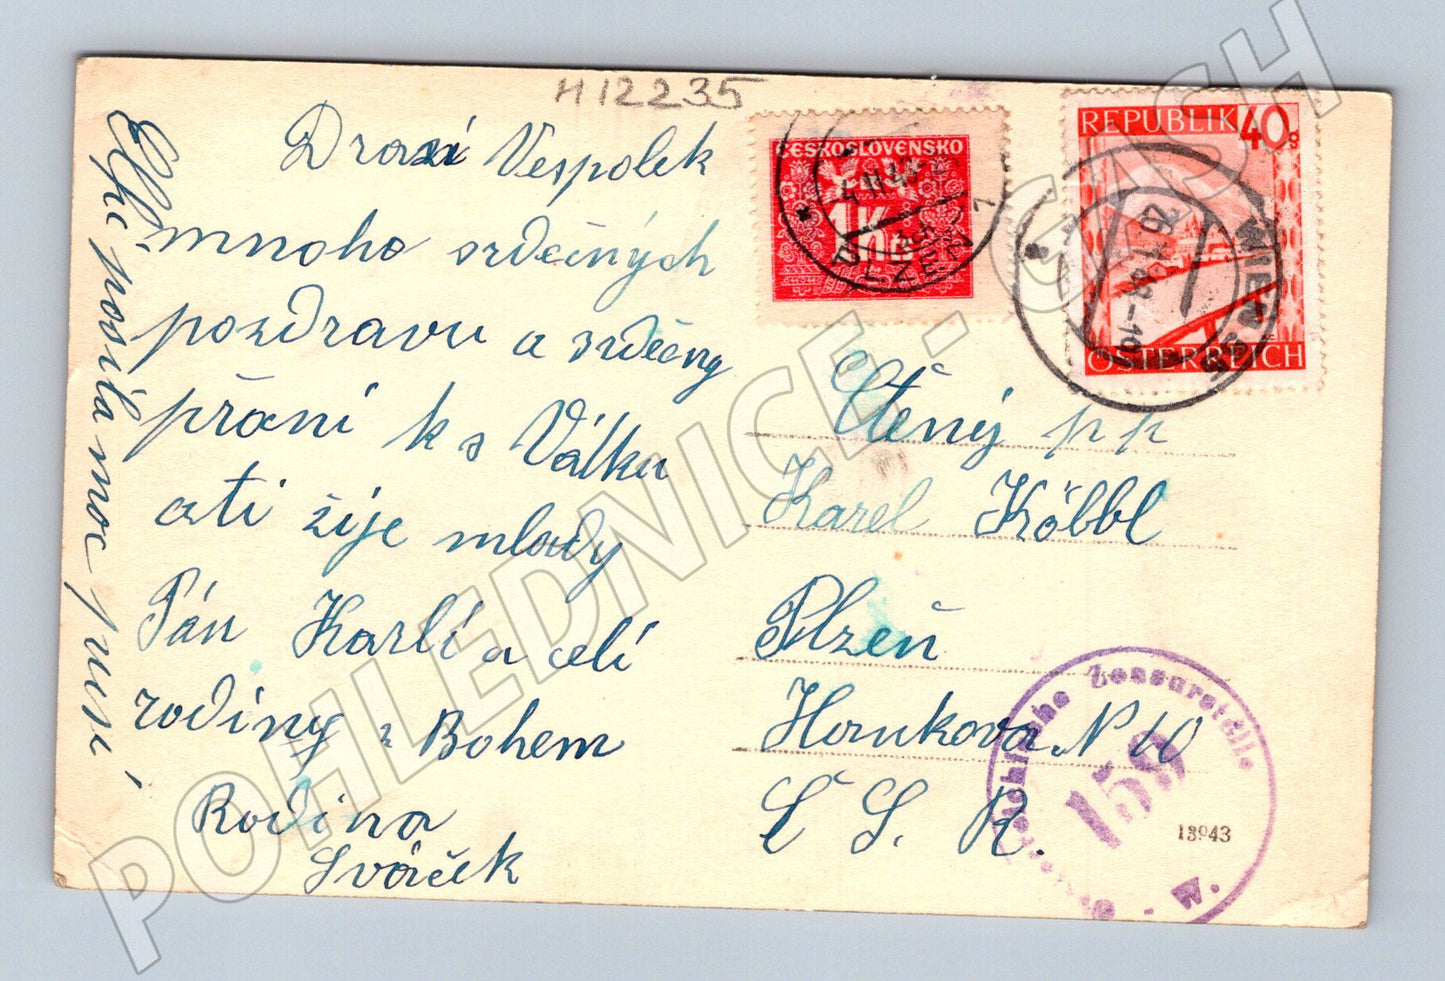 H12235
Drazí Vespolek
mnoho srdečných
pozdravu a srdečny
přání k s Válku
ati žije mlady
Pán Karlí a celi
rodiny z Bohem
Rodina
Sváček
posila moc pusi
ČESKOSLOVENSKO
1 Kčs
PLZEŇ 1
REPUBLIK 40g
ÖSTERREICH
WIEN
26.1.48-19
Ctěný pp
Karel Köbbl
Plzeň
Hourkova N 10
Č S. R.
Österreichische Zensurstelle
159
W.
13943
POHLEDNICE - GASH